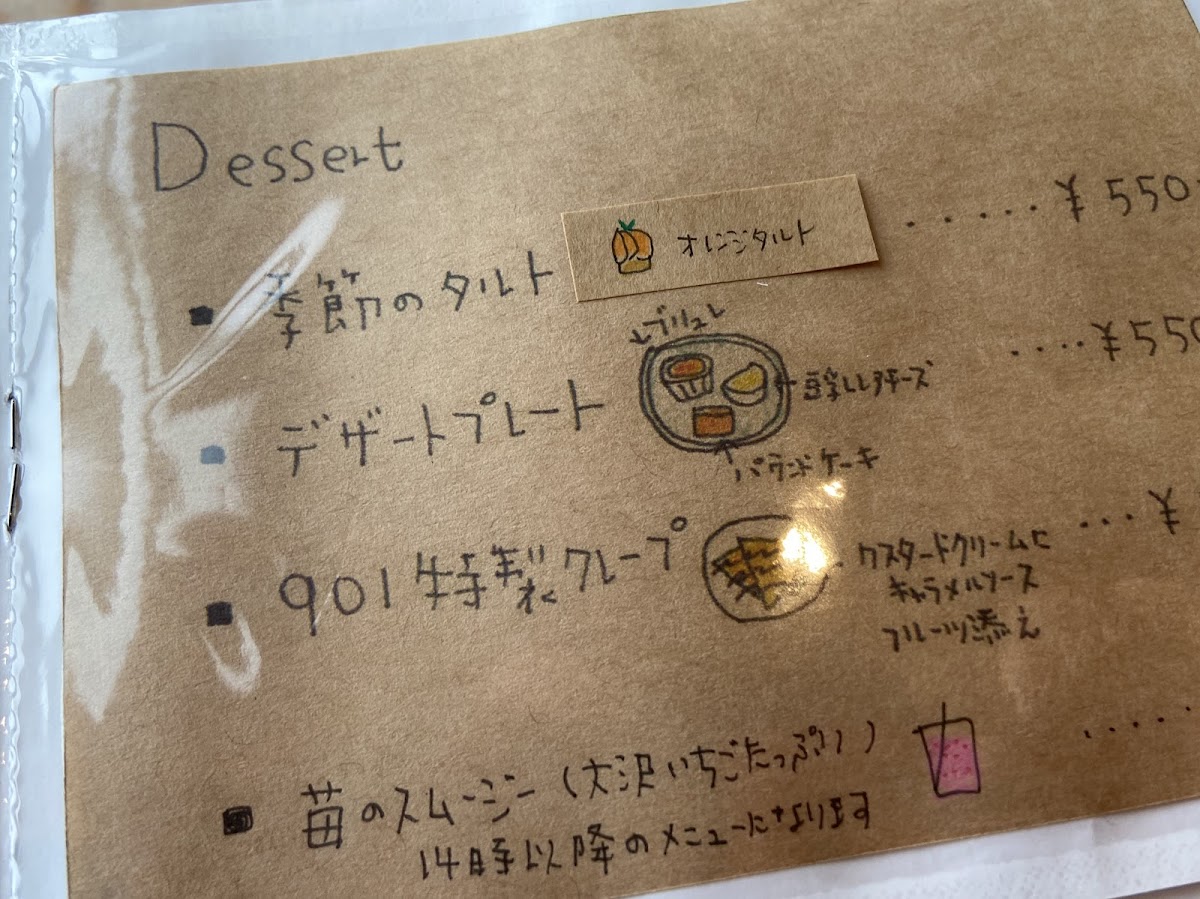 Dessert
■ 季節のタルト オレンジタルト ・・・・・・ ¥550
■ デザートプレート ・・・・ ¥550
↙ブリュレ
←豆乳レアチーズ
↑パウンドケーキ
■ 901特製クレープ ・・・ ¥
カスタードクリームに
キャラメルソース
フルーツ添え
■ 苺のスムージー(大沢いちごたっぷり) ・・・・・
14時以降のメニューになります